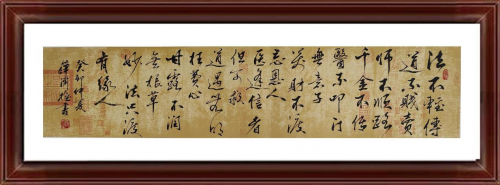 法不輕傳
道不賤賣
師不順路
千金不傳
醫不叩门
無義子
萬財不渡
忘恩人
医逢信者
但可救
道遇无明
枉費心
甘露不润
無根草
妙法只渡
有缘人
癸卯仲夏